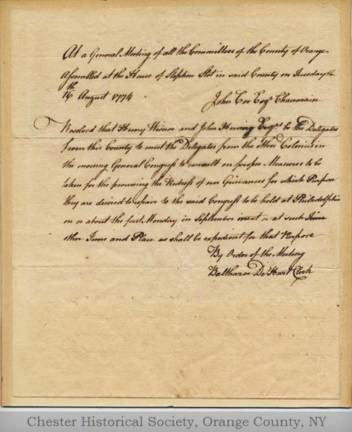 At a General Meeting of all the Committees of the County of Orange
Assembled at the House of Stephen Slot in said County on Tuesday the
16th August 1774
John Coe Esqr Chairman
Resolved that Henry Wisner and John Haring Esqrs be the Delegates
from this County to meet the Delegates from the other Colonies in
the ensuing General Congress to consult on proper Measures to be
taken for the procuring the Redress of our Grievances for which Purpose
they are desired to repair to the said Congress to be held at Philadelphia
on or about the first Monday in September or at such
other Time and Place as shall be expedient for that Purpose
By Order of the Meeting
Balthazar De Hart Clerk
Chester Historical Society, Orange County, NY